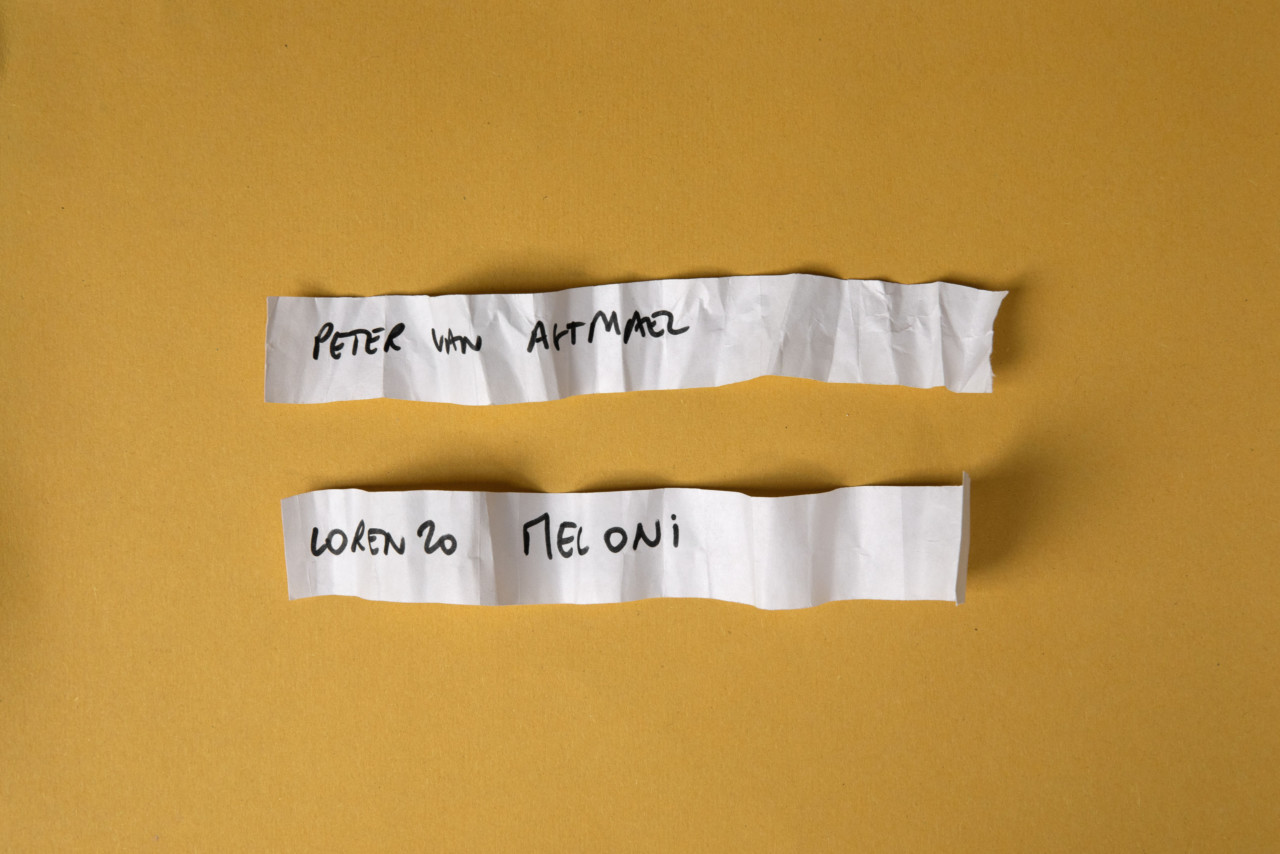 PETER VAN AGTMAEL
LORENZO MELONI